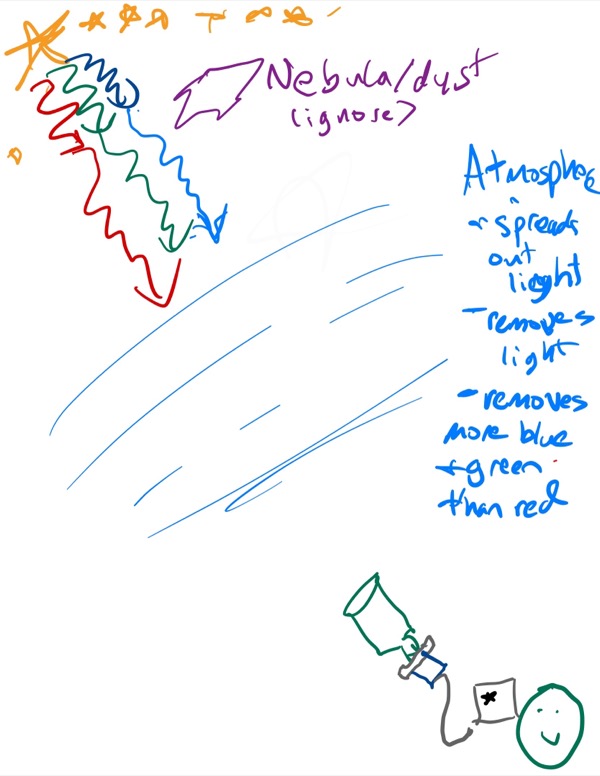 Nebula/dust
(ignore)
Atmosphere
- spreads
out
light
- removes
light
- removes
more blue
+ green
than red